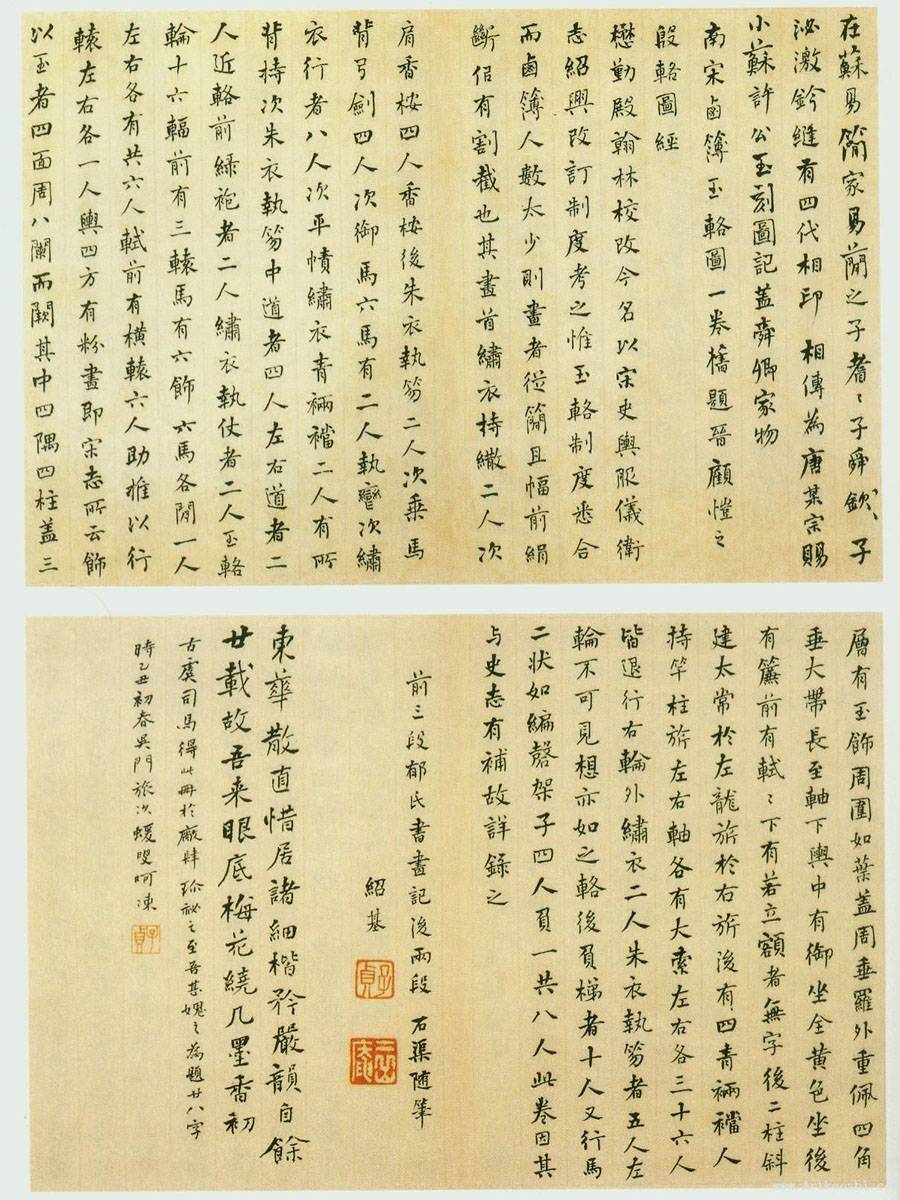 在蘇易簡家易簡之子耆〻子舜欽〻子
泌激鈐縫有四代相印 相傳為唐某宗賜
小蘇許公玉刻圖記蓋舜卿家物
南宋鹵簿玉輅圖一卷舊題晉顧愷之
殷輅圖經
懋勤殿翰林校改今名以宋史輿服儀衛
志紹興改訂制度考之惟玉輅制度悉合
而鹵簿人數太少則畫者從簡且幅前絹
斷佀有割截也其畫首繡衣持繖二人次
肩香桉四人香桉後朱衣執笏二人次乗馬
背弓劍四人次御馬六馬有二人執轡次繡
衣行者八人次平幘繡衣青裲襠二人有所
背持次朱衣執笏中道者四人左右道者二
人近輅前緑袍者二人繡衣執仗者二人玉輅
輪十六輻前有三轅馬有六飾六馬各閒一人
左右各有共六人軾前有橫轅六人助推以行
轅左右各一人輿四方有粉畫即宋志所云飾
以玉者四面周八闌而闕其中四隅四柱蓋三
層有玉飾周圍如葉蓋周垂羅外重佩四角
垂大帶長至軸下輿中有御坐全黄色坐後
有簾前有軾〻下有若立額者無字後二柱斜
建太常於左龍旂於右旂後有四青裲襠人
持竿柱旂左右軸各有大索左右各三十六人
皆退行右輪外繡衣二人朱衣執笏者五人左
輪不可見想亦如之輅後負梯者十人又行馬
二状如編磬架子四人負一共八人此卷因其
与史志有補故詳録之
前三段郁氏書畫記後兩段 石渠随筆
紹基
子貞
東華散直惜居諸細楷矜嚴韻自餘
廿載故吾来眼底梅花繞几墨香初
古虞司馬得此冊於廠肆珍祕之至吾甚媿之為題廿八字
時乙丑初春吴門旅次蝯叟呵凍
子貞